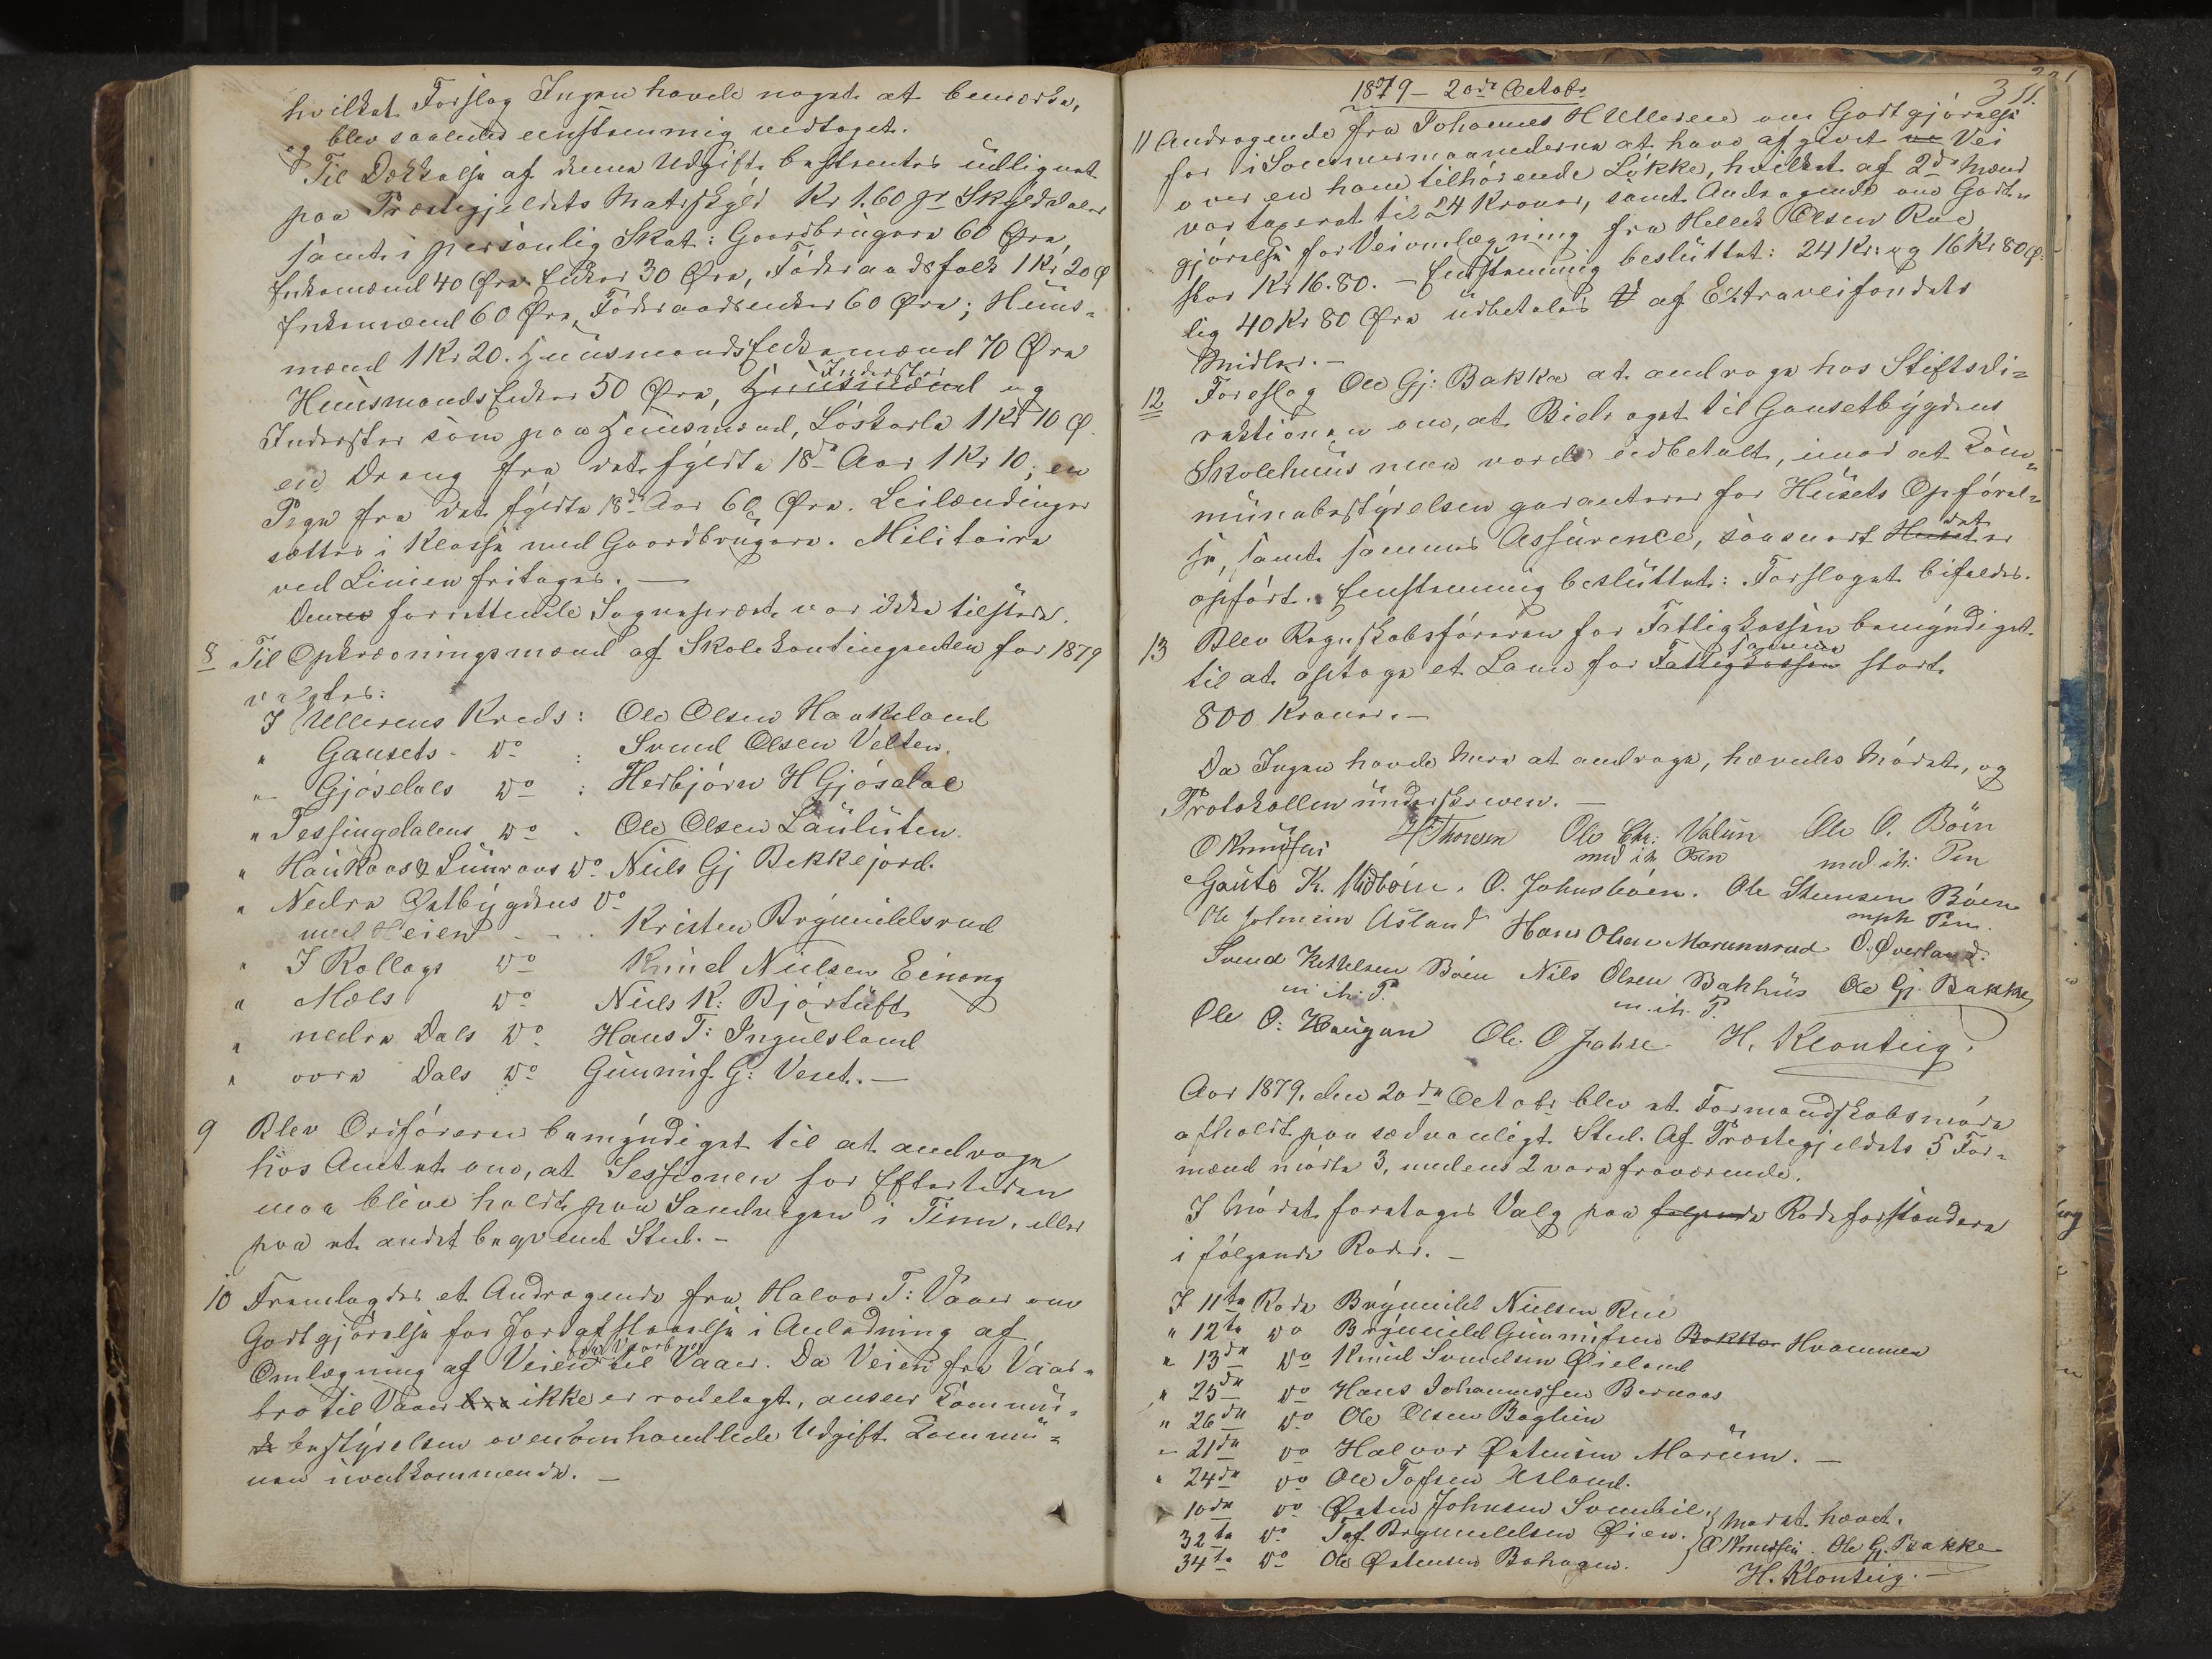 hvilket Forslag Ingen havde noget at bemærke,
og blev saaledes eenstemmig vedtaget.
Til Dækkelse af denne Udgift bestemtes udlignet
paa Præstegjeldets Matrskyld Kr 1.60 pr Skylddaler
samt i personlig Skat: Gaardbrugere 60 Øre,
Enkemænd 40 Øre Enker 30 Øre, Föderaadsfolk 1 Kr 20 Ø
Enkemænd 60 Øre, Föderaadsenker 60 Øre; Huus-
mænd 1 Kr 20. Huusmandsenkemænd 70 Øre
Huusmandsenker 50 Øre, Huusmænd Inderster og
Inderster som paa Huusmænd, Löskarle 1 Kr 10 Ø.
en Dreng fra det fyldte 18de Aar 1 Kr 10; en
Pige fra det fyldte 18de Aar 60 Øre. Leilændinger
sættes i Klasse med Gaardbrugere. Militaire
ved Linien fritages. —
Den forrettende Sognepræst var ikke tilstede.
8 Til Opkrævningsmænd af Skolekontingenten for 1879
valgtes:
I Ullerens Kreds: Ole Olsen Haukeland
" Gausets do : Svend Olsen Velten.
" Gjösdals do : Herbjörn H Gjösdal
" Tessungdalens do . Ole Olsen Lauluten.
" Haukaas & Sunvaas do Niels Gj Bekkejord.
" Nedre Østbygdens do
med Heien - - . Kristen Brynildsrud
" I Kollags do Knud Nielsen Einong
" Mæls do Niels K: Bjørtuft
" nedre Dals do Hans T: Ingulsland
" övre Dals do Gunnuf G: Veset. —
9 Blev Ordföreren bemyndiget til at andrage
hos Amtet om, at Sessionen for Eftertiden
maa blive holdt paa Sandvigen i Tinn, eller
paa et andet beqvemt Sted. -
10 Fremlagdes et Andragende fra Halvor T: Vaaer om
Godtgjörelse for Jordafstaaelse i Anledning af
Omlægning af Veien fra Vaarbro til Vaaer. Da Veien fra Vaar-
bro til Vaaer ikke er rodelagt, anseer Kommu-
bestyrelsen ovenomhandlede Udgift Kommu-
nen uvedkommende. —
1879 - 20de Octobr
311.
11 Andragende fra Johannes H Ulleren om Godtgjörelse
for i Sommermaanederne at have afgivet Vei
over en ham tilhörende Lökke, hvilket af 2de Mænd
var taxeret til 24 Kroner, samt Andragende om Godt-
gjörelse for Veiomlægning fra Hellek Olsen Rue
stor Kr 16.80. - Eenstemmig besluttet: 24 Kr: og 16 Kr 80 Ø.
lig 40 Kr 80 Øre udbetales af Extraveifondets
Midler. -
12 Foreslog Ole Gj: Bakke at andrage hos Stiftsdi-
rektionen om, at Bidraget til Gausetbygdens
Skolehuus maa vorde udbetalt, imod at Kom-
munebestyrelsen garanterer for Husets Opförel-
se, samt sammes Assurence, saasnart Huset det er
opfört. Eenstemmig besluttet: Forslaget bifaldes.
13 Blev Regnskabsföreren for Fattigkassen bemyndiget
til at optage et Laan for Fattigkassen samme stort
800 Kroner. -
Da Ingen havde mere at andrage, hævedes Mödet, og
Protokollen underskreven. —
O Knudsen H Thoresen Ole Chr: Valun Ole O. Böen
med ih Pen med ih: Pen
Gaute K. Midböen. O. Johnsböen. Ole Steensen Böen
mph Pen.
Ole Asland Hans Olsen Marumsrud O. Øverland.
Svend Kittelsen Böen Nils Olsen Bakhus Ole Gj. Bakke
m. ih. P. m. ih. P.
Ole O: Haugan Ole O H. Klonteig.
Aar 1879, den 20de Octobr blev et Formandskabsmöde
afholdt paa sædvanligt Sted. Af Præstegjeldets 5 For-
mænd mödte 3, medens 2 vare fraværende.
I Mödet foretoges Valg paa følgende Rodeforstandere
i fölgende Roder. -
I 11te Rode Brynild Nielsen Rue
" 12te do Brynild Gunnufsen Bakken Hvammen
" 13de do Knud Svendsen Øieland
" 25de do Hans Johannessen Bernaas
" 26de do Ole Olsen Böglien
" 21de do Halvor Østensen Marum. —
" 24de do Ole Tofsen Usland.
" 10de do Østen Johnsen Svenbil.
32te do Tof Brynildsen Øien. } Mödet hævet.
34te do Ole Østensen Bøhagen. O Knudsen. Ole Gj. Bakke
H. Klonteig. -